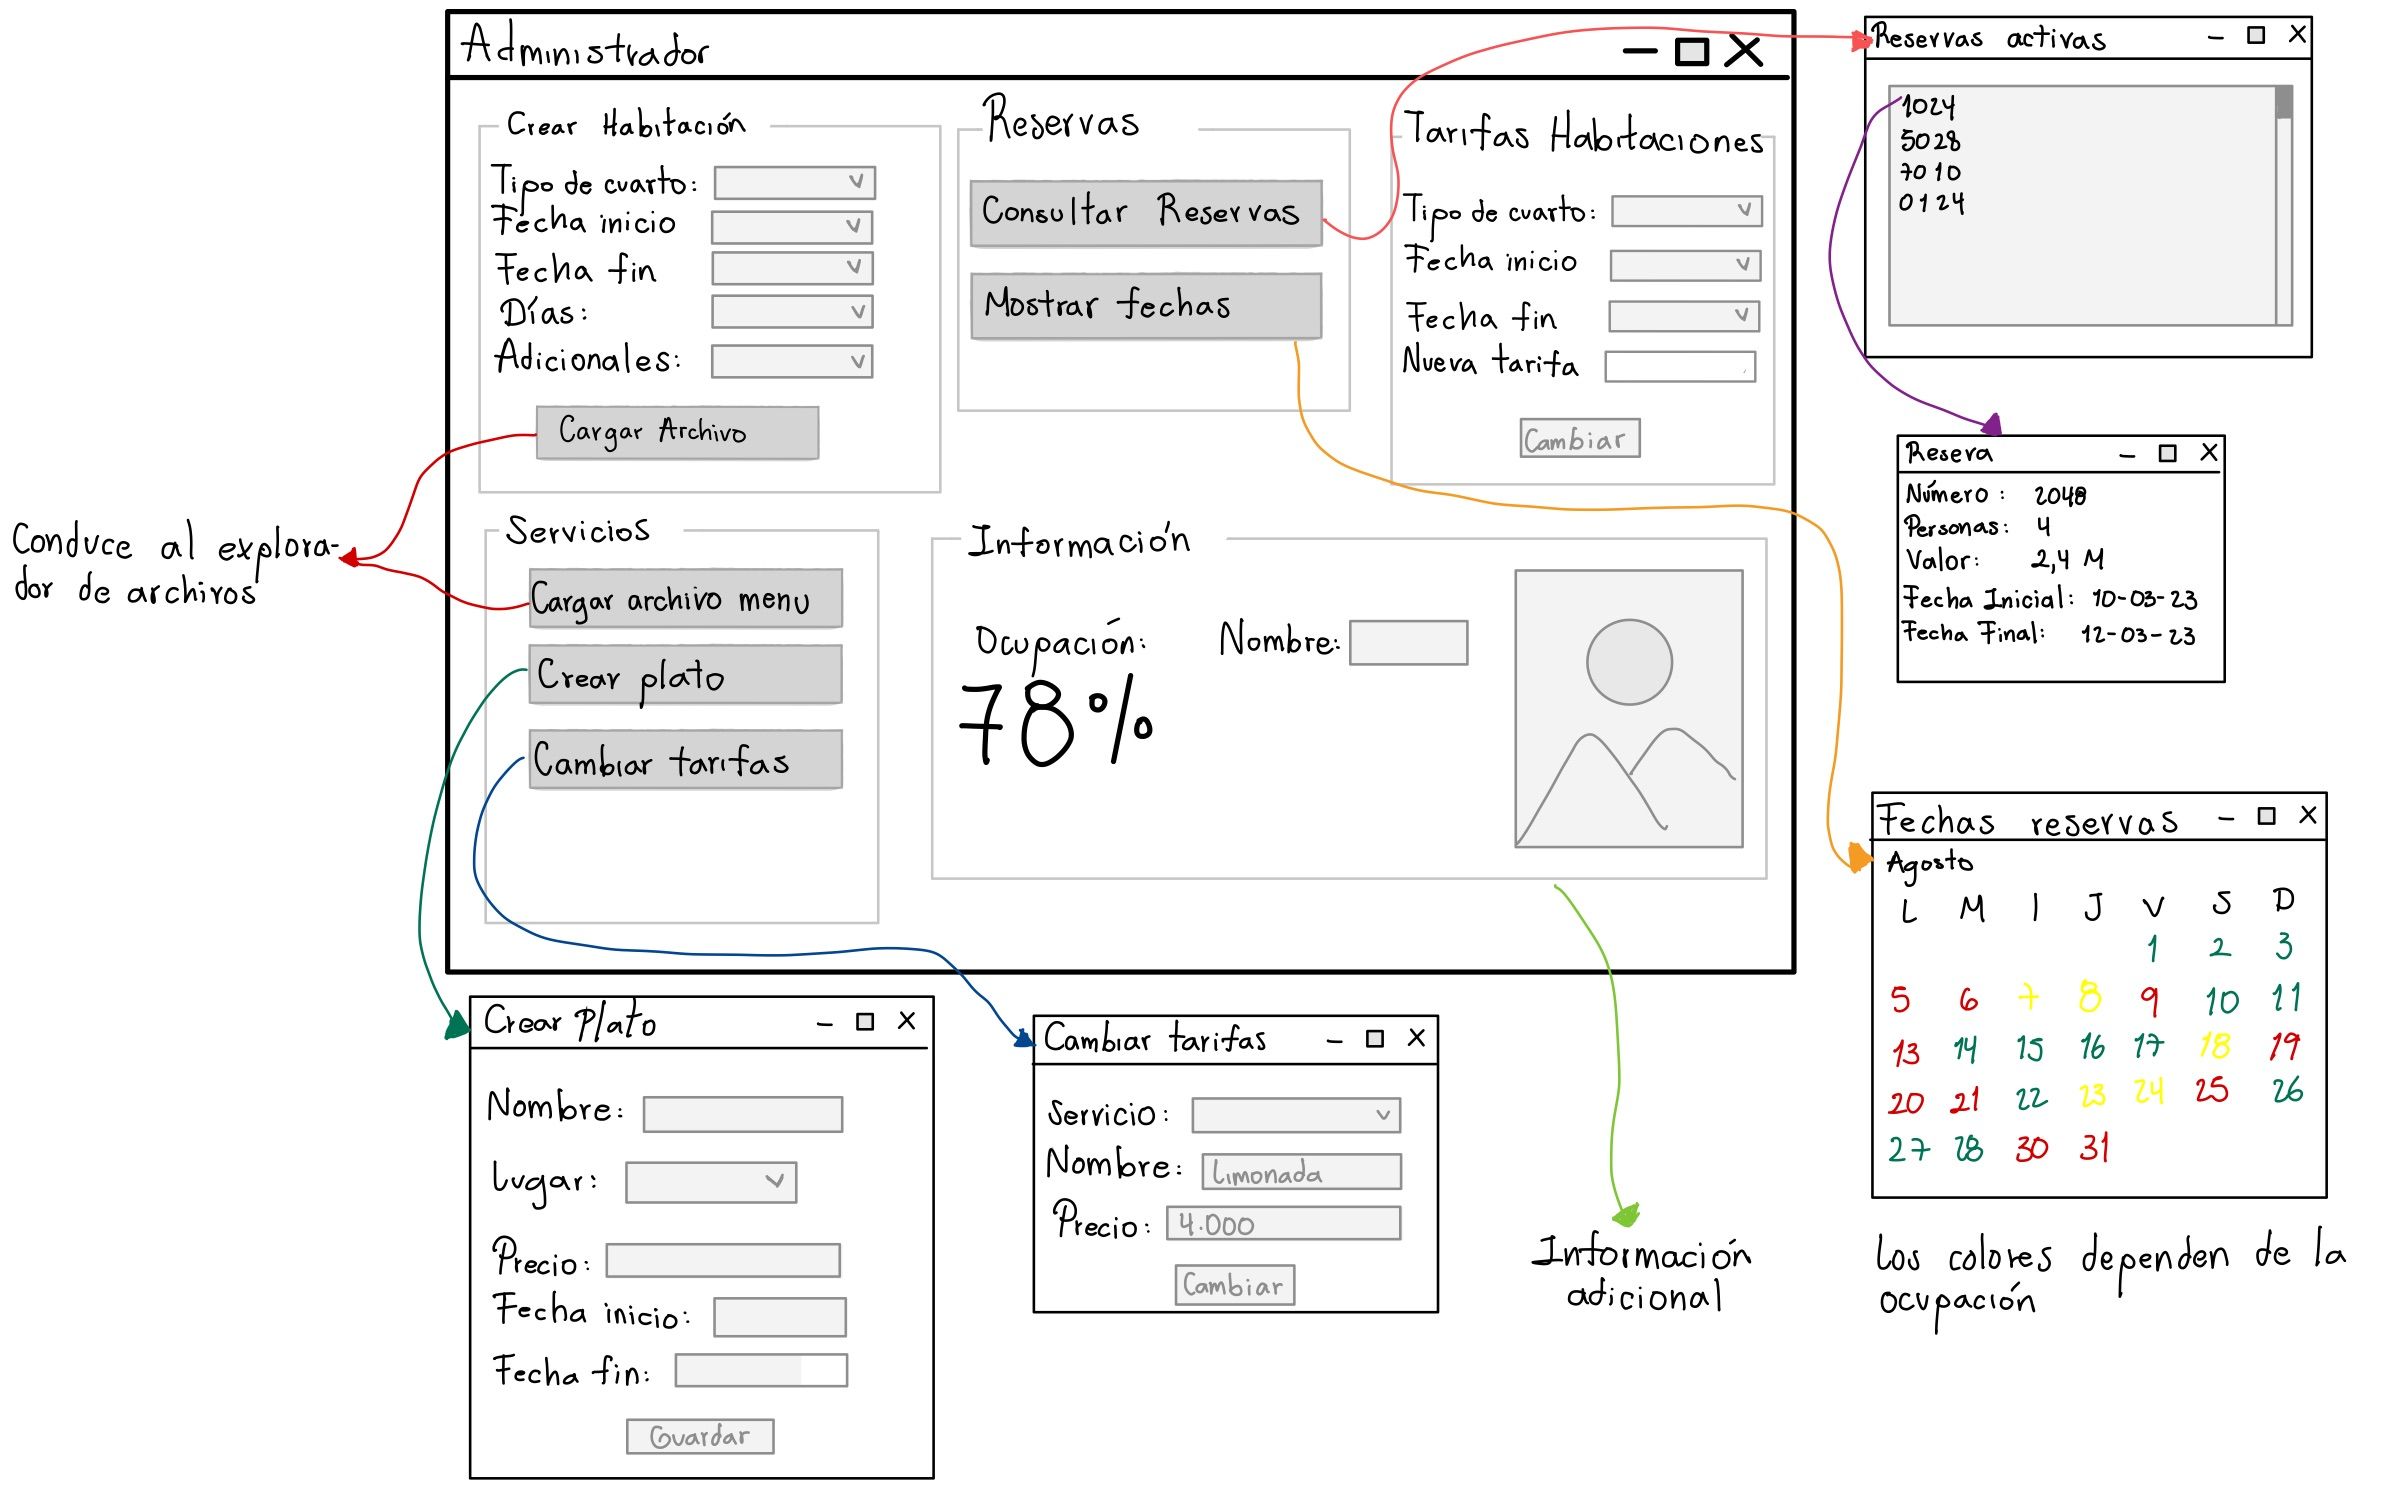 Administrador
Crear Habitación
Tipo de cuarto:
Fecha inicio
Fecha fin
Días:
Adicionales:
Cargar Archivo
Reservas
Consultar Reservas
Mostrar fechas
Tarifas Habitaciones
Tipo de cuarto:
Fecha inicio
Fecha fin
Nueva tarifa
Cambiar
Servicios
Cargar archivo menu
Crear plato
Cambiar tarifas
Información
Ocupación:
78%
Nombre:
Conduce al explora-
dor de archivos
Reservas activas
1024
5028
7010
0124
Reseva
Número: 2048
Personas: 4
Valor: 2,4 M
Fecha Inicial: 10-03-23
Fecha Final: 12-03-23
Fechas reservas
Agosto
L M I J V S D
1 2 3
5 6 7 8 9 10 11
13 14 15 16 17 18 19
20 21 22 23 24 25 26
27 28 30 31
Los colores dependen de la
ocupación
Crear Plato
Nombre:
Lugar:
Precio:
Fecha inicio:
Fecha fin:
Guardar
Cambiar tarifas
Servicio:
Nombre: Limonada
Precio: 4.000
Cambiar
Información
adicional